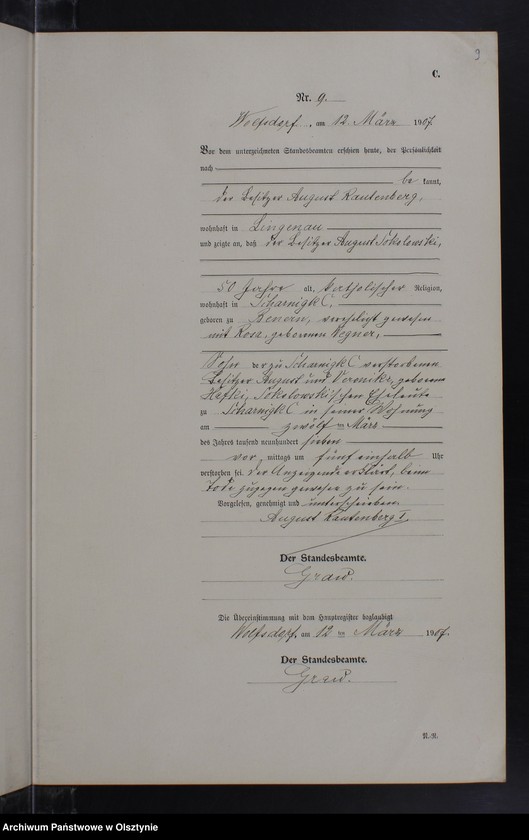 9
C.
Nr. 9.
Wolfsdorf, am 12 März 1907.
Vor dem unterzeichneten Standesbeamten erschien heute, der Persönlichkeit
nach
be kannt,
der Besitzer August Rautenberg,
wohnhaft in Lingenau
und zeigte an, daß der Besitzer August Sokolowski,
50 Jahre alt, katholischer Religion,
wohnhaft in Scharnigk C,
geboren zu Benern, verehelicht gewesen
mit Rosa, geborenen Wegner,
Sohn der zu Scharnigk C verstorbenen
Besitzer August und Veronika, geborene
Hafke, Sokolowski'schen Eheleute
zu Scharnigk C in seiner Wohnung
am zwölf ten März
des Jahres tausend neunhundert sieben
vor mittags um fünf einhalb Uhr
verstorben sei. Der Anzeigende erklärt, beim
Tode zugegen gewesen zu sein.
Vorgelesen, genehmigt und unterschrieben
August Rautenberg I.
Der Standesbeamte.
Graw.
Die Übereinstimmung mit dem Hauptregister beglaubigt
Wolfsdorf, am 12 ten März 1907.
Der Standesbeamte.
Graw.
Archiwum Państwowe w Olsztynie